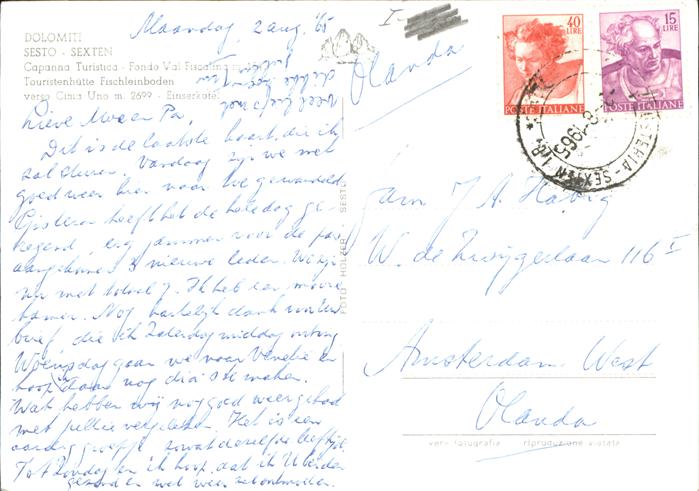 Maandag, 2 aug. '65
DOLOMITI
SESTO - SEXTEN
Capanna Turistica - Fondo Val Fiscalina
Touristenhütte Fischleinboden
verso Cima Uno m. 2699 - Einserkofel
veel liefs nog
dikke
Lieve Moe en Pa,
Dit is de laatste kaart die ik
zal sturen. Vandaag zijn we met
goed weer hier naar toe gewandeld
Gisteren heeft het de hele dag ge-
regend, erg jammer voor de pas
aangekomen 3 nieuwe leden. We zijn
nu met totaal 7. Ik heb een mooie
kamer. Nog hartelijk dank voor uw
brief die ik Zaterdag middag ontving
Woensdag gaan we naar Venetië en
hoop daar nog dia's te maken.
Wat hebben wij nog goed weer gehad
met jullie vergeleken. Het is een
aardig groepje zowat dezelfde leeftijd.
Tot Zondag en ik hoop dat ik U beiden
gezond en wel weer zal ontmoeten.
FOTO HOLZER - SESTO
I
Olanda
40
LIRE
POSTE ITALIANE
15
LIRE
POSTE ITALIANE
-8-1965
SEXTEN
Fam J. A. Hovig
W. de Zwijgerlaan 116 I
Amsterdam West
Olanda
vera fotografia riproduzione vietata